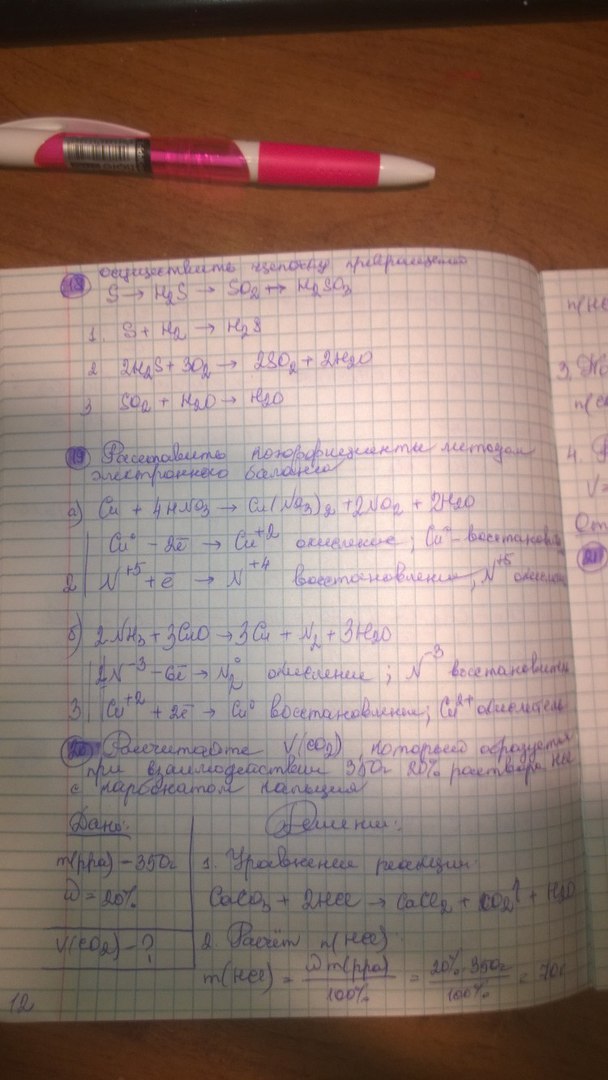 18 осуществить цепочку превращений
S → H₂S → SO₂ → H₂SO₃
1. S + H₂ → H₂S
2 2H₂S + 3O₂ → 2SO₂ + 2H₂O
3 SO₂ + H₂O → H₂O
19 Расставить коэффициенты методом
электронного баланса
а) Cu + 4HNO₃ → Cu(NO₃)₂ + 2NO₂ + 2H₂O
Cu⁰ - 2ē → Cu⁺² окисление; Cu⁰ - восстановит
2 N⁺⁵ + ē → N⁺⁴ восстановление, N⁺⁵ окисли
б) 2NH₃ + 3CuO → 3Cu + N₂ + 3H₂O
2N⁻³ - 6ē → N₂⁰ окисление; N⁻³ восстановитель
3 Cu⁺² + 2ē → Cu⁰ восстановление; Cu²⁺ окислитель
20 Рассчитайте V(CO₂), который образуется
при взаимодействии 350г 20% раствора HCl
с карбонатом кальция
Дано: Решение:
m(рра) - 350г 1. Уравнение реакции:
ω = 20% CaCO₃ + 2HCl → CaCl₂ + CO₂↑ + H₂O
V(CO₂) - ? 2. Расчёт n(HCl)
m(HCl) = ω m(рра) / 100% = 20% · 350г / 100% = 70г
12
n(HC
3.
n(c
4.
V=
От
21